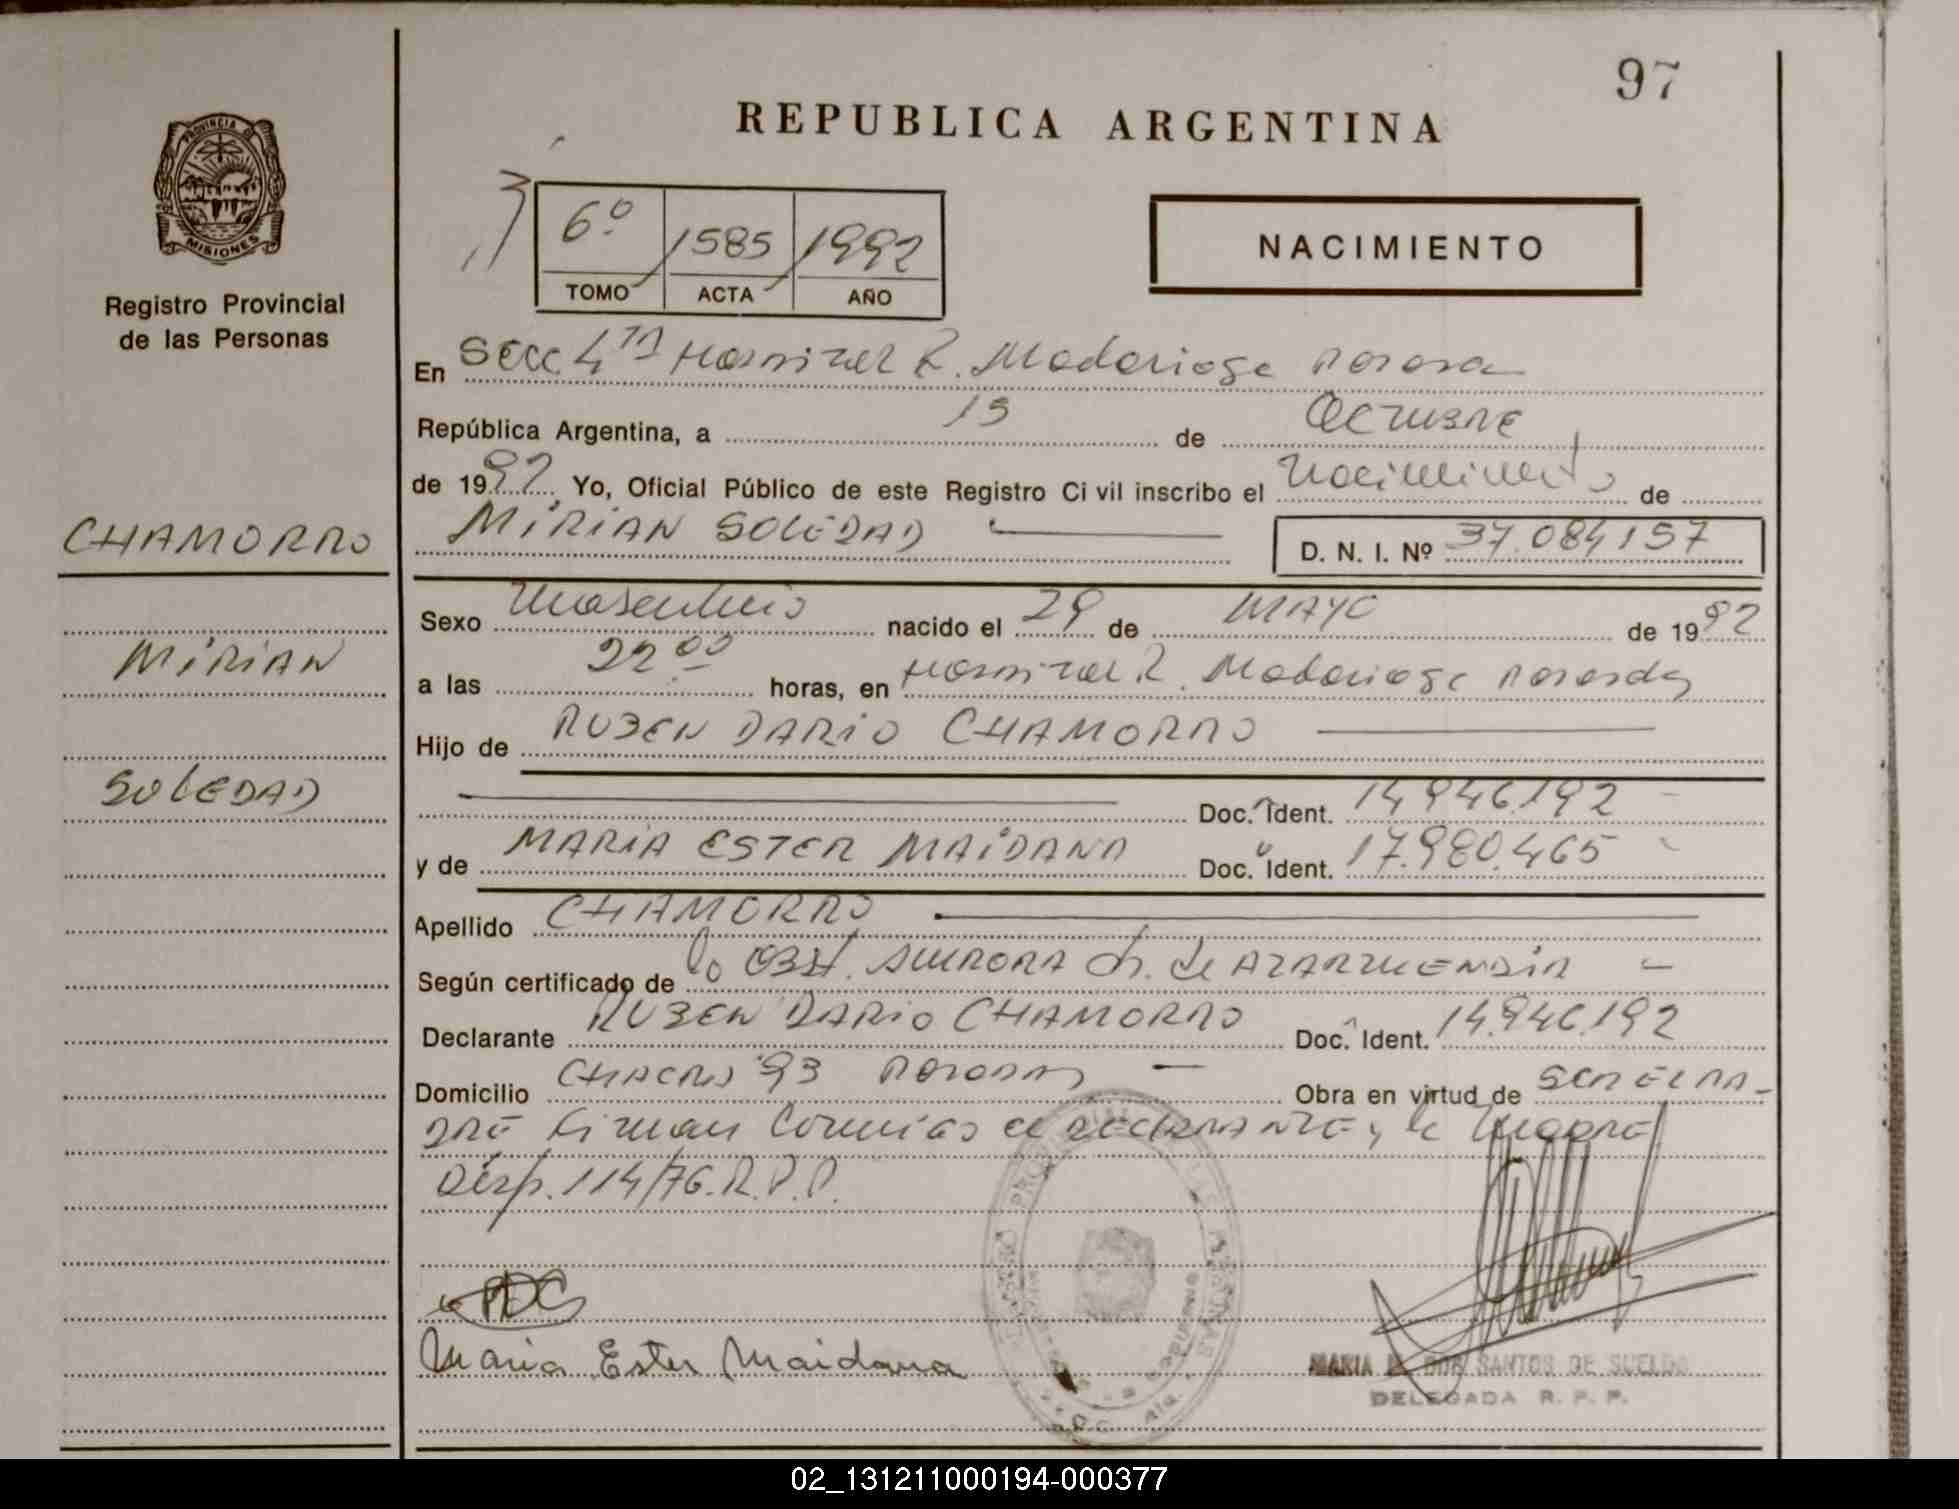 97
REPUBLICA ARGENTINA
PROVINCIA DE
MISIONES
Registro Provincial
de las Personas
6º 1585 1992
TOMO ACTA AÑO
NACIMIENTO
En Secc 4ta Hospital R. Madariaga Posadas
República Argentina, a 15 de Octubre
de 1992 Yo, Oficial Público de este Registro Civil inscribo el Nacimiento de
MIRIAN SOLEDAD D. N. I. Nº 37.084157
CHAMORRO
Sexo Masculino nacido el 29 de MAYO de 1992
MIRIAN
a las 22 00 horas, en Hospital R. Madariaga Posadas
Hijo de RUBEN DARIO CHAMORRO
SOLEDAD
Doc. Ident. 14.946.192
y de MARIA ESTER MAIDANA Doc. Ident. 17.980.465
Apellido CHAMORRO
Según certificado de la Obst. AURORA Ch. de
Declarante RUBEN DARIO CHAMORRO Doc. Ident. 14.946.192
Domicilio CHACRA 93 Posadas Obra en virtud de SER EL PA-
DRE Firman Conmigo el DECLARANTE y la Madre
Disp. 114/76. R.P.P.
RDC
Maria Ester Maidana
MARIA DOS SANTOS DE SUELDO
DELEGADA R. P. P.
02_131211000194-000377